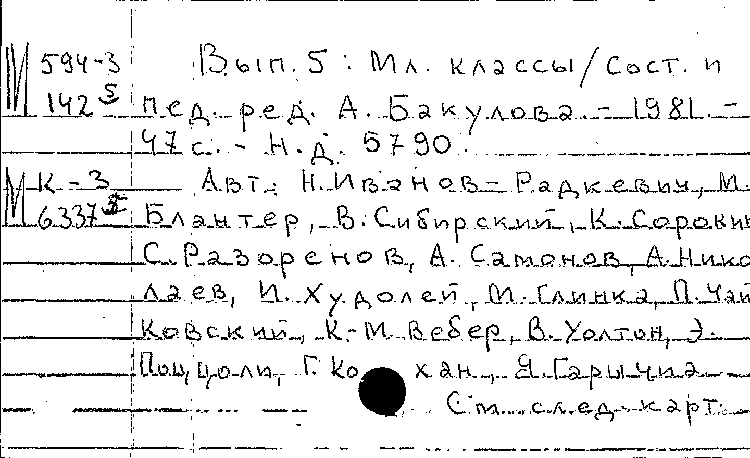 М 594-3 Вып. 5 : Мл. классы / Сост. и
142 5 пед. ред. А. Бакулова. - 1981. -
47 с. - Н. Д. 5790.
М К-3 Авт.: Н. Иванов-Радкевич, М.
6337 5 Блантер, В. Сибирский, К. Сорокин
С. Разоренов, А. Самонов, А. Нико
лаев, И. Худолей, М. Глинка, П. Чай
ковский, К.-М. Вебер, В. Уолтон, Э.
Поццоли, Г. Ко хан, Я. Гарычиа
См. след. карт.